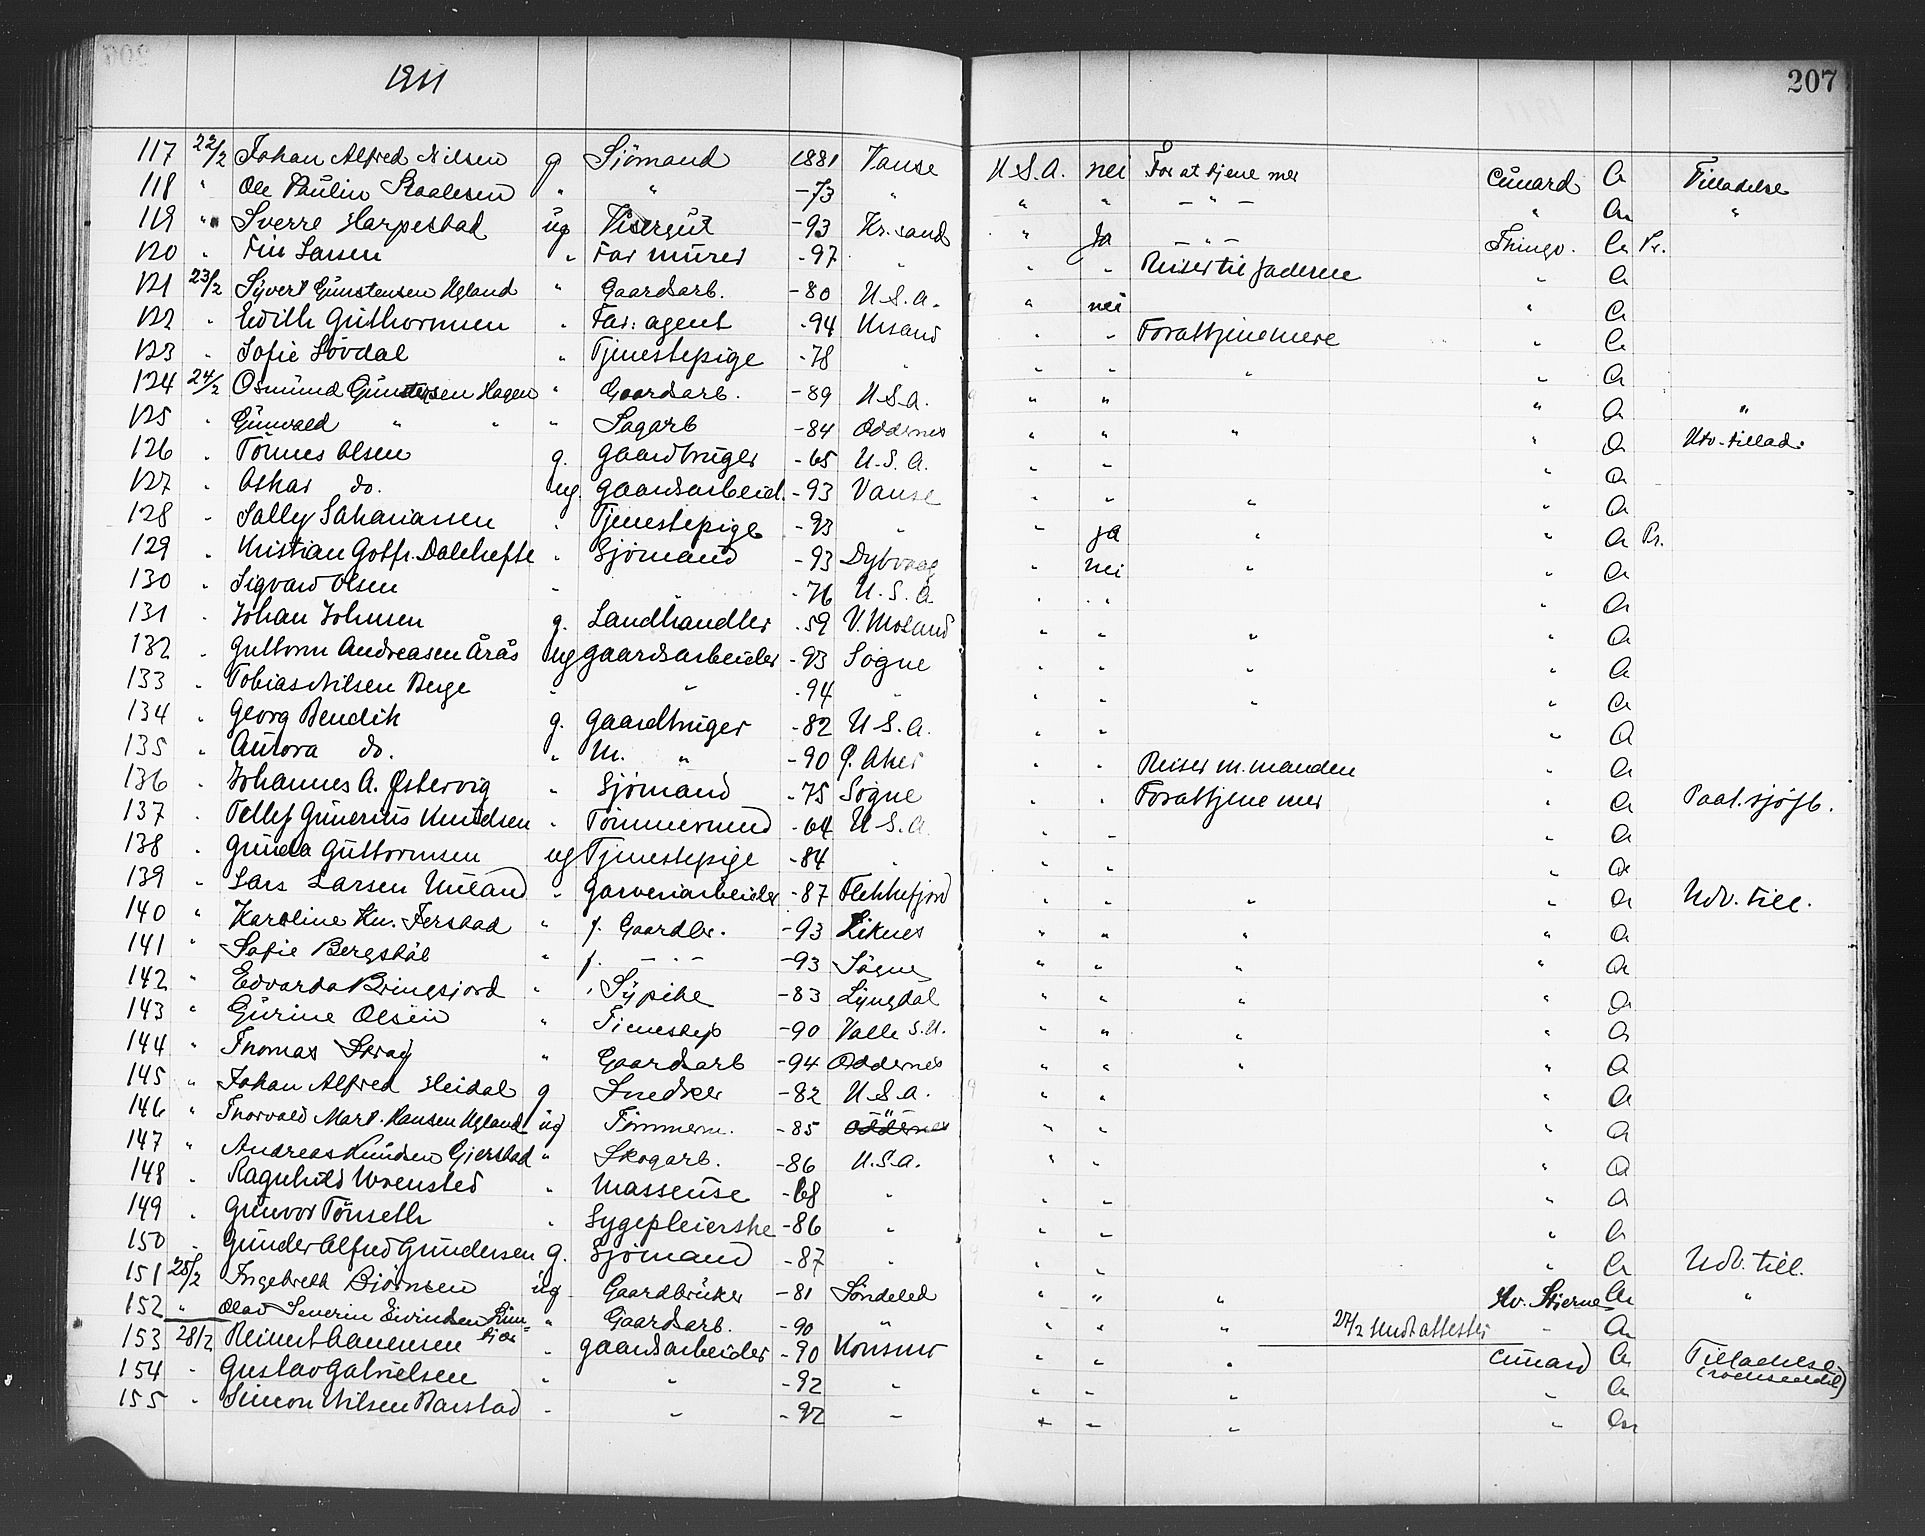 1911
207
117 22/2 Johan Alfred Nilsen g Sjömand 1881 Vanse U.S.A. nei For at tjene mer Cunard A Tilladelse
118 " Ole Paulin Staalesen " " -73 " " " - " - " A "
119 " Sverre Harpestad ug Visergut -93 Kr.sand " Ja - " - Thingv. A Pr.
120 " Finn Larsen " Far murer -97 " " " Reiser til faderen " A
121 23/2 Syvert Gunstensen Ugland " Gaardsarb. -80 U.S.A. " nei " A
122 " Edith Guthormsen " Far: agent -94 Krsand " " For at tjene mere " A
123 " Sofie Lövdal " Tjenestepige -78 " " " " " A
124 24/2 Osmund Gunstensen Hagen " Gaardsarb. -89 U.S.A. " " " A "
125 " Gunvald " " " Sagarb -84 Oddernes " " " " A Utv. tillad.
126 " Tönnes Olsen g. Gaardbruger -65 U.S.A. " " " A
127 " Oskar do. ug. Gaardsarbeid. -93 Vanse " " " " A
128 " Sally Sakariassen " Tjenestepige -93 " " ja " " A Pr.
129 " Kristian Gotfr. Dalehefte " Sjömand -93 Dybvaag " nei " " A
130 " Sigvard Olsen " -76 U.S.A " " " A
131 " Johan Johnsen g. Landhandler -59 V. Moland " " " " A
132 " Guttorm Andreasen Årås ug Gaardsarbeider -93 Sögne " " " " A
133 " Tobias Nilsen Berge " " -94 " " " " " A
134 " Georg Bendik g. Gaardbruger -82 U.S.A. " " " A
135 " Aurora do. " M. " -90 Ø. Aker " " Reiser m. manden " A
136 " Johannes A. Østervig " Sjömand -75 Sögne " " For at tjene mer " A Paat. sjöfb.
137 " Tellef Gunerius Knudsen " Tömmermd -64 U.S.A. " " " A
138 " Gunda Guttormsen ug Tjenestepige -84 " " " " A
139 " Lars Larsen Nuland " Garveriarbeider -87 Flekkefjord " " " " A Udv. till.
140 " Karoline Kn. Ferstad " f. Gaardbr. -93 Liknes " " " " A
141 " Sofie Bergstöl " f. - " - -93 Sögne " " " " A
142 " Edvarda Bringsjord " Sypike -83 Lyngdal " " " " A
143 " Gurine Olsen " Tjenestep -90 Valle S.U. " " " " A
144 " Thomas Stray " Gaardsarb -94 Oddernes " " " " A
145 " Johan Alfred Heidal g Snedker -82 U.S.A. " " " A
146 " Thorvald Mart. Hansen Ugland ug Tömmerm. -85 Oddernes " " " A
147 " Andreas Knudsen Gjerstad " Skogarb. -86 U.S.A. " " " A
148 " Ragnhild Wrensted " Masseuse -68 " " " " A
149 " Gunvor Tönseth " Sygepleierske -86 " " " " A
150 " Gunder Alfred Gundersen g. Sjömand -87 " " " " A Udv. till.
151 25/2 Ingebreth Björnsen ug Gaardbruker -81 Söndeled " " " Hv. Stjerne A "
152 " Olav Severin Eivindsen " Gaardsarb. -90 " " " " 27/2 " A
153 28/2 Reinert Aanensen " Gaardsarbeider -90 Konsmo " " " Cunard A Tilladelse
154 " Gustav Gabrielsen " " -92 " " " " " A
155 " Simon Nilsen Barstad " " -92 " " " " " A